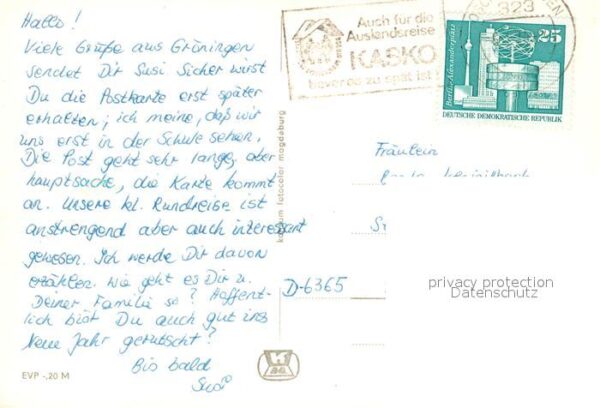 Hallo!
Viele Grüße aus Gröningen
sendet Dir Susi Sicher wirst
Du die Postkarte erst später
erhalten; ich meine, daß wir
uns erst in der Schule sehen.
Die Post geht sehr lange, aber
hauptsache, die Karte kommt
an. Unsere kl. Rundreise ist
anstrengend aber auch interessant
gewesen. Ich werde Dir davon
erzählen. Wie geht es Dir u.
Deiner Familie so? Hoffent-
lich bist Du auch gut ins
Neue Jahr gerutscht?
Bis bald
Susi
EVP -,20 M
magdaburg
Auch für die
Auslandsreise
KASKO
bevor es zu spät ist
323
25
Berlin-Alexanderplatz
DEUTSCHE DEMOKRATISCHE REPUBLIK
Fräulein
D-6365
privacy protection
Datenschutz